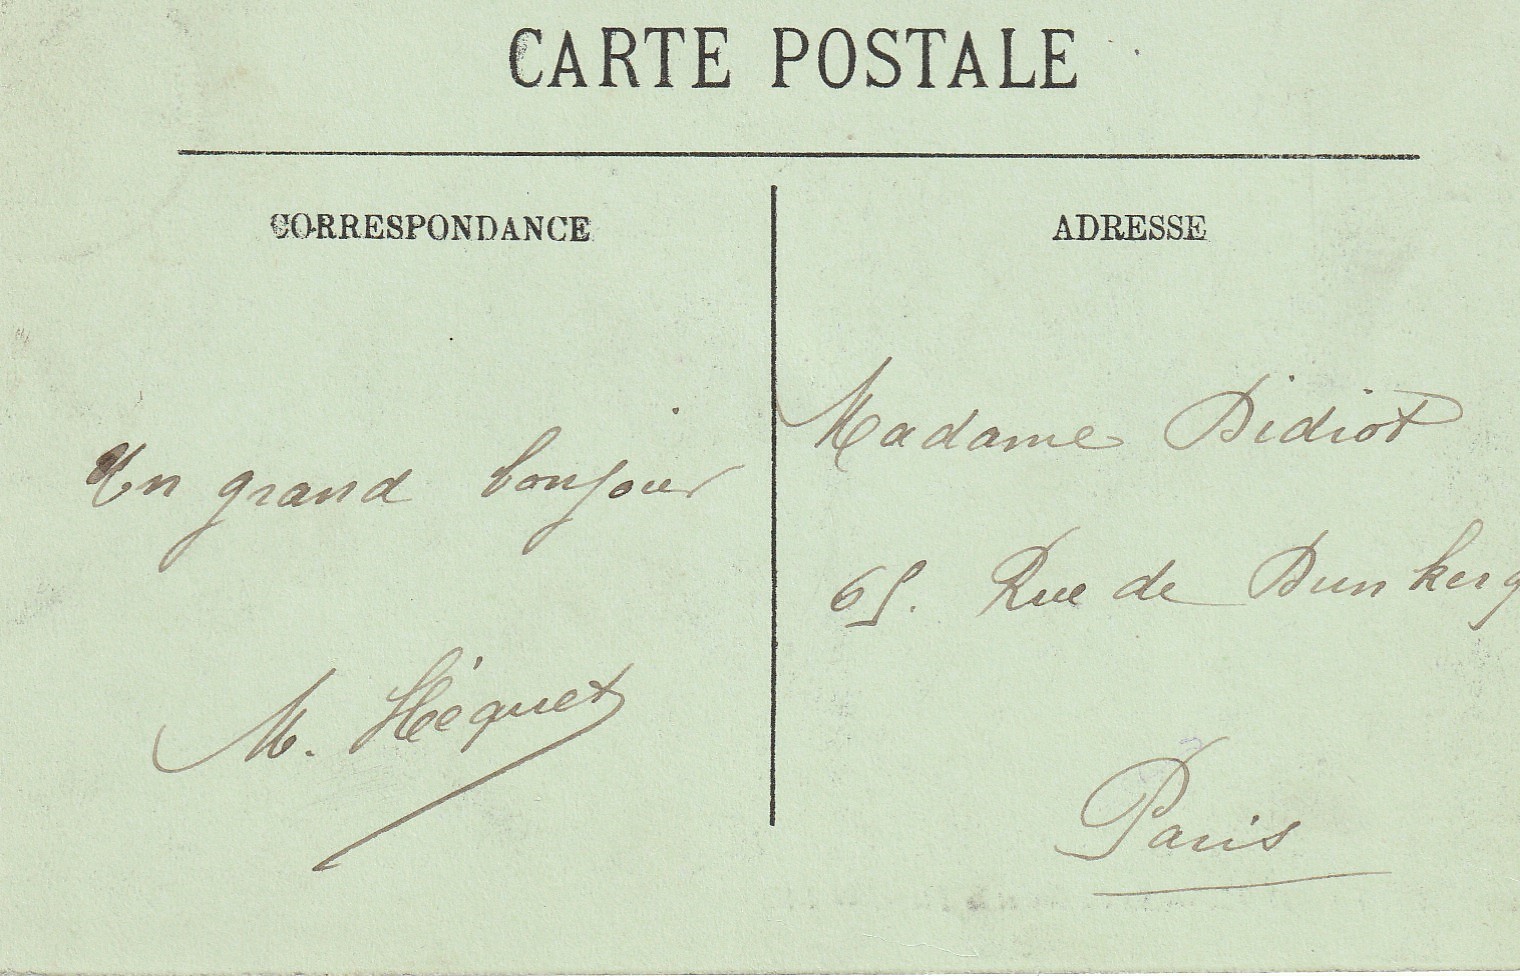 CARTE POSTALE
CORRESPONDANCE
Un grand bonjour
M. Héquet
ADRESSE
Madame Didiot
65. Rue de Dunkerq
Paris